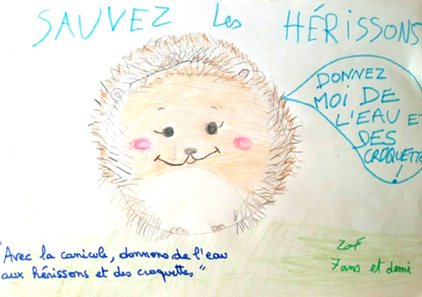 SAUVEZ les HÉRISSONS
DONNEZ
MOI DE
L'EAU ET
DES
CROQUETTES
!
"Avec la canicule, donnons de l'eau
aux hérissons et des croquettes"
Zoé
7 ans et demi